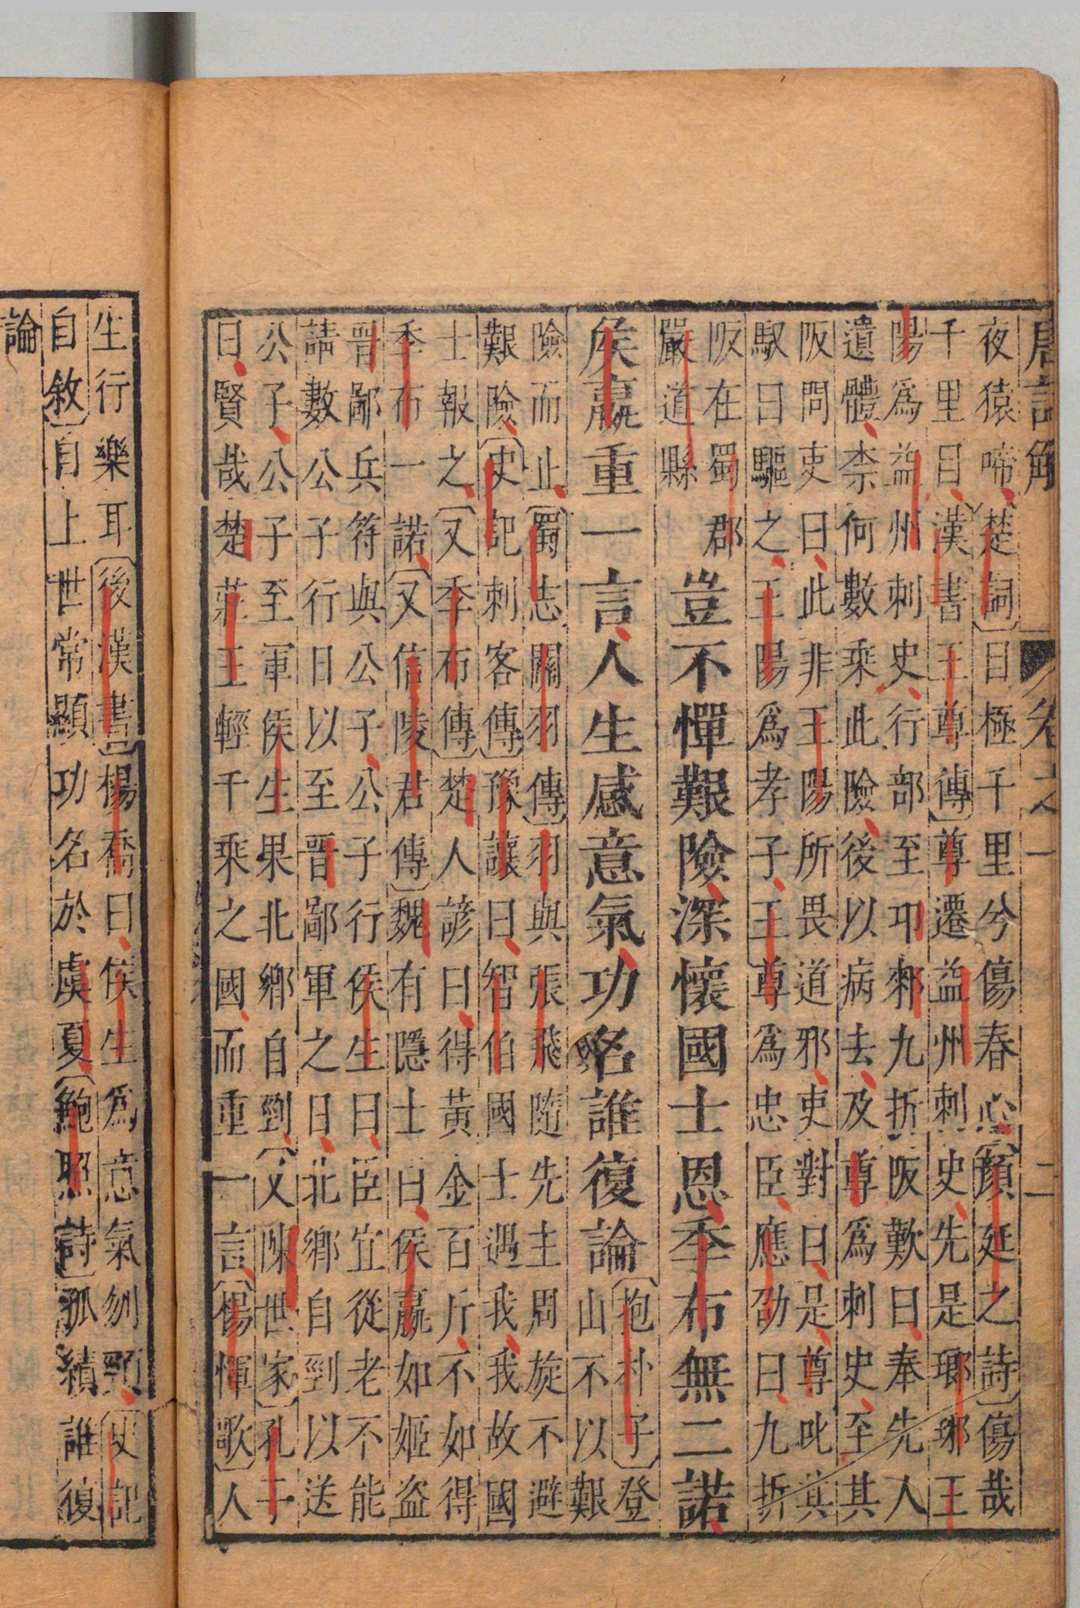 唐詩解 卷之一 二
夜猿啼楚詞目極千里兮傷春心顏延之詩傷哉
千里目漢書王尊傳尊遷益州刺史先是瑯琊王
陽爲益州刺史行部至邛郲九折阪歎曰奉先人
遺體柰何數乘此險後以病去及尊爲刺史至其
阪問吏曰此非王陽所畏道邪吏對曰是尊叱其
馭曰驅之王陽爲孝子王尊爲忠臣應劭曰九折
阪在蜀郡
嚴道縣
豈不憚艱險深懷國士恩季布無二諾
侯嬴重一言人生感意氣功名誰復論
抱朴子登
山不以艱
險而止蜀志關羽傳羽與張飛隨先主周旋不避
艱險史記刺客傳豫讓曰智伯國士遇我我故國
士報之又季布傳楚人諺曰得黃金百斤不如得
季布一諾又信陵君傳魏有隱士曰侯嬴如姬盗
晉鄙兵符與公子公子行侯生曰臣宜從老不能
請數公子行日以至晉鄙軍之日北鄉自剄以送
公子公子至軍侯生果北鄉自剄又陳世家孔子
曰賢哉楚莊王輕千乘之國而重一言楊惲歌人
生行樂耳後漢書楊喬曰侯生爲意氣刎頸史記
自敘自上世常顯功名於虞夏鮑照詩孤績誰復
論